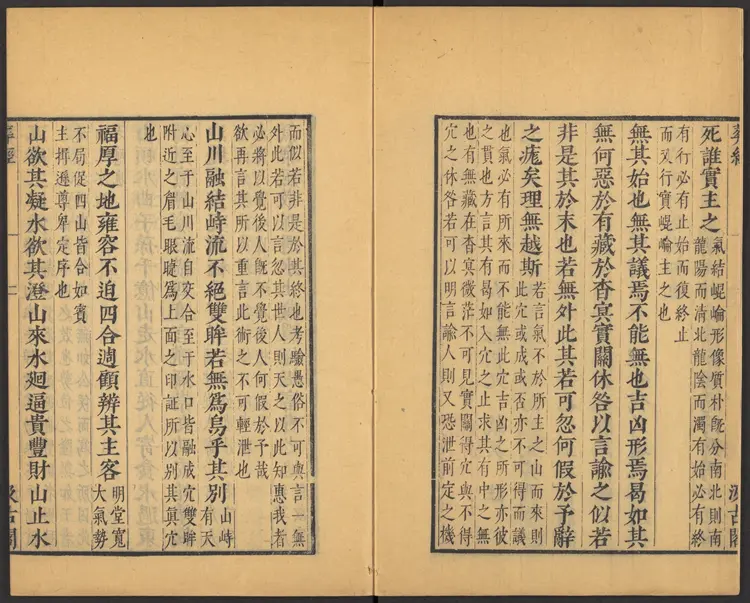 葬經
汲古閣
死誰實主之
氣結崐崘形像質朴旣分南北則南
龍陽而清北龍陰而濁有始必有終
有行必有止始而復終止
而又行實崐崘主之也
無其始也無其議焉不能無也吉凶形焉曷如其
無何惡於有藏於杳冥實關休咎以言諭之似若
非是其於末也若無外此其若可忽何假於予辭
之疣矣理無越斯
若言氣不於所主之山而來則
此穴或成或否亦不可得而議
也氣必有所來而不能無此穴吉凶之所形亦彼
之貫也方言其有曷如入穴之止求其有中之無
也有無藏在杳冥微茫不可見實關得穴與不得
穴之休咎若可以明言諭人則又恐泄前定之機
而似若非是於其終也考驗愚俗不可輿言一無
外此若可以言忽其世人則天之以此知惠我者
必將以覺後人旣不覺後人何假於予哉
欲再言其所以重言此術之不可輕泄也
山川融結峙流不絕雙眸若無爲烏乎其別
山峙
有天
心至于山川流自交合至于水口皆融成穴雙眸
附近之眉毛眼睫爲上面之印証所以别其真穴
也
福厚之地雍容不迫四合週顧辨其主客
明堂寬
大氣勢
不局促四山皆合如賓
主揖遜尊卑定序也
山欲其凝水欲其澄山來水廻逼貴豐財山止水
葬經
二
汲古閣